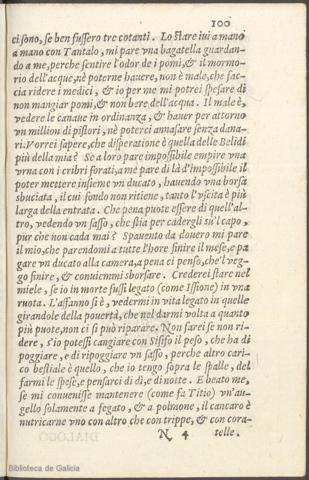 100
ci sono, se ben fussero tre cotanti. Lo stare ivi a mano
a mano con Tantalo, mi pare vna bagatella guardan-
do a me, perche sentire l'odor de i pomi, & il mormo-
rio dell'acqua, nè poterne hauere, non è male, che fac-
cia ridere i medici, & io per me mi potrei spesare di
non mangiar pomi, & non bere dell'acqua. Il male è,
vedere le canaue in ordinanza, & hauer per attorno
vn million di pistori, nè poterci annasare senza dana-
ri. Vorrei sapere, che disperatione è quella delle Belidi
più della mia? Se a loro pare impossibile empire vna
vrna con i cribri forati, a me pare di là d'impossibile il
poter mettere insieme vn ducato, hauendo vna borsa
sbuciata, il cui fondo non ritiene, tanto l'vscita è più
larga della entrata. Che pena puote essere di quell'al-
tro, vedendo vn sasso, che stia per cadergli su'l capo,
pur che non cada mai? Spauento da douero mi pare
il mio, che parendomi a tutte l'hore finire il mese, e pa
gare vn ducato alla camera, a pena ci penso, che'l veg-
go finire, & conuiemmi sborsare. Crederei stare nel
miele, se io in morte fussi legato (come Issione) in vna
ruota. L'affanno si è, vedermi in vita legato in quelle
girandole della pouertà, che nel darmi volta a quanto
più puote, non ci si può riparare. Non farei se non ri-
dere, s'io potessi cangiare con Sisifo il peso, che ha di
poggiare, e di ripoggiare vn sasso, perche altro cari-
co bestiale è quello, che io tengo sopra le spalle, del
farmi le spese, e pensarci di dì, e di notte. E beato me,
se mi conuenisse mantenere (come fa Titio) vn'au-
gello solamente a fegato, & a polmone, il cancaro è
nutricarne vno con altro che con trippe, & con cora-
N 4 telle.
Biblioteca de Galicia